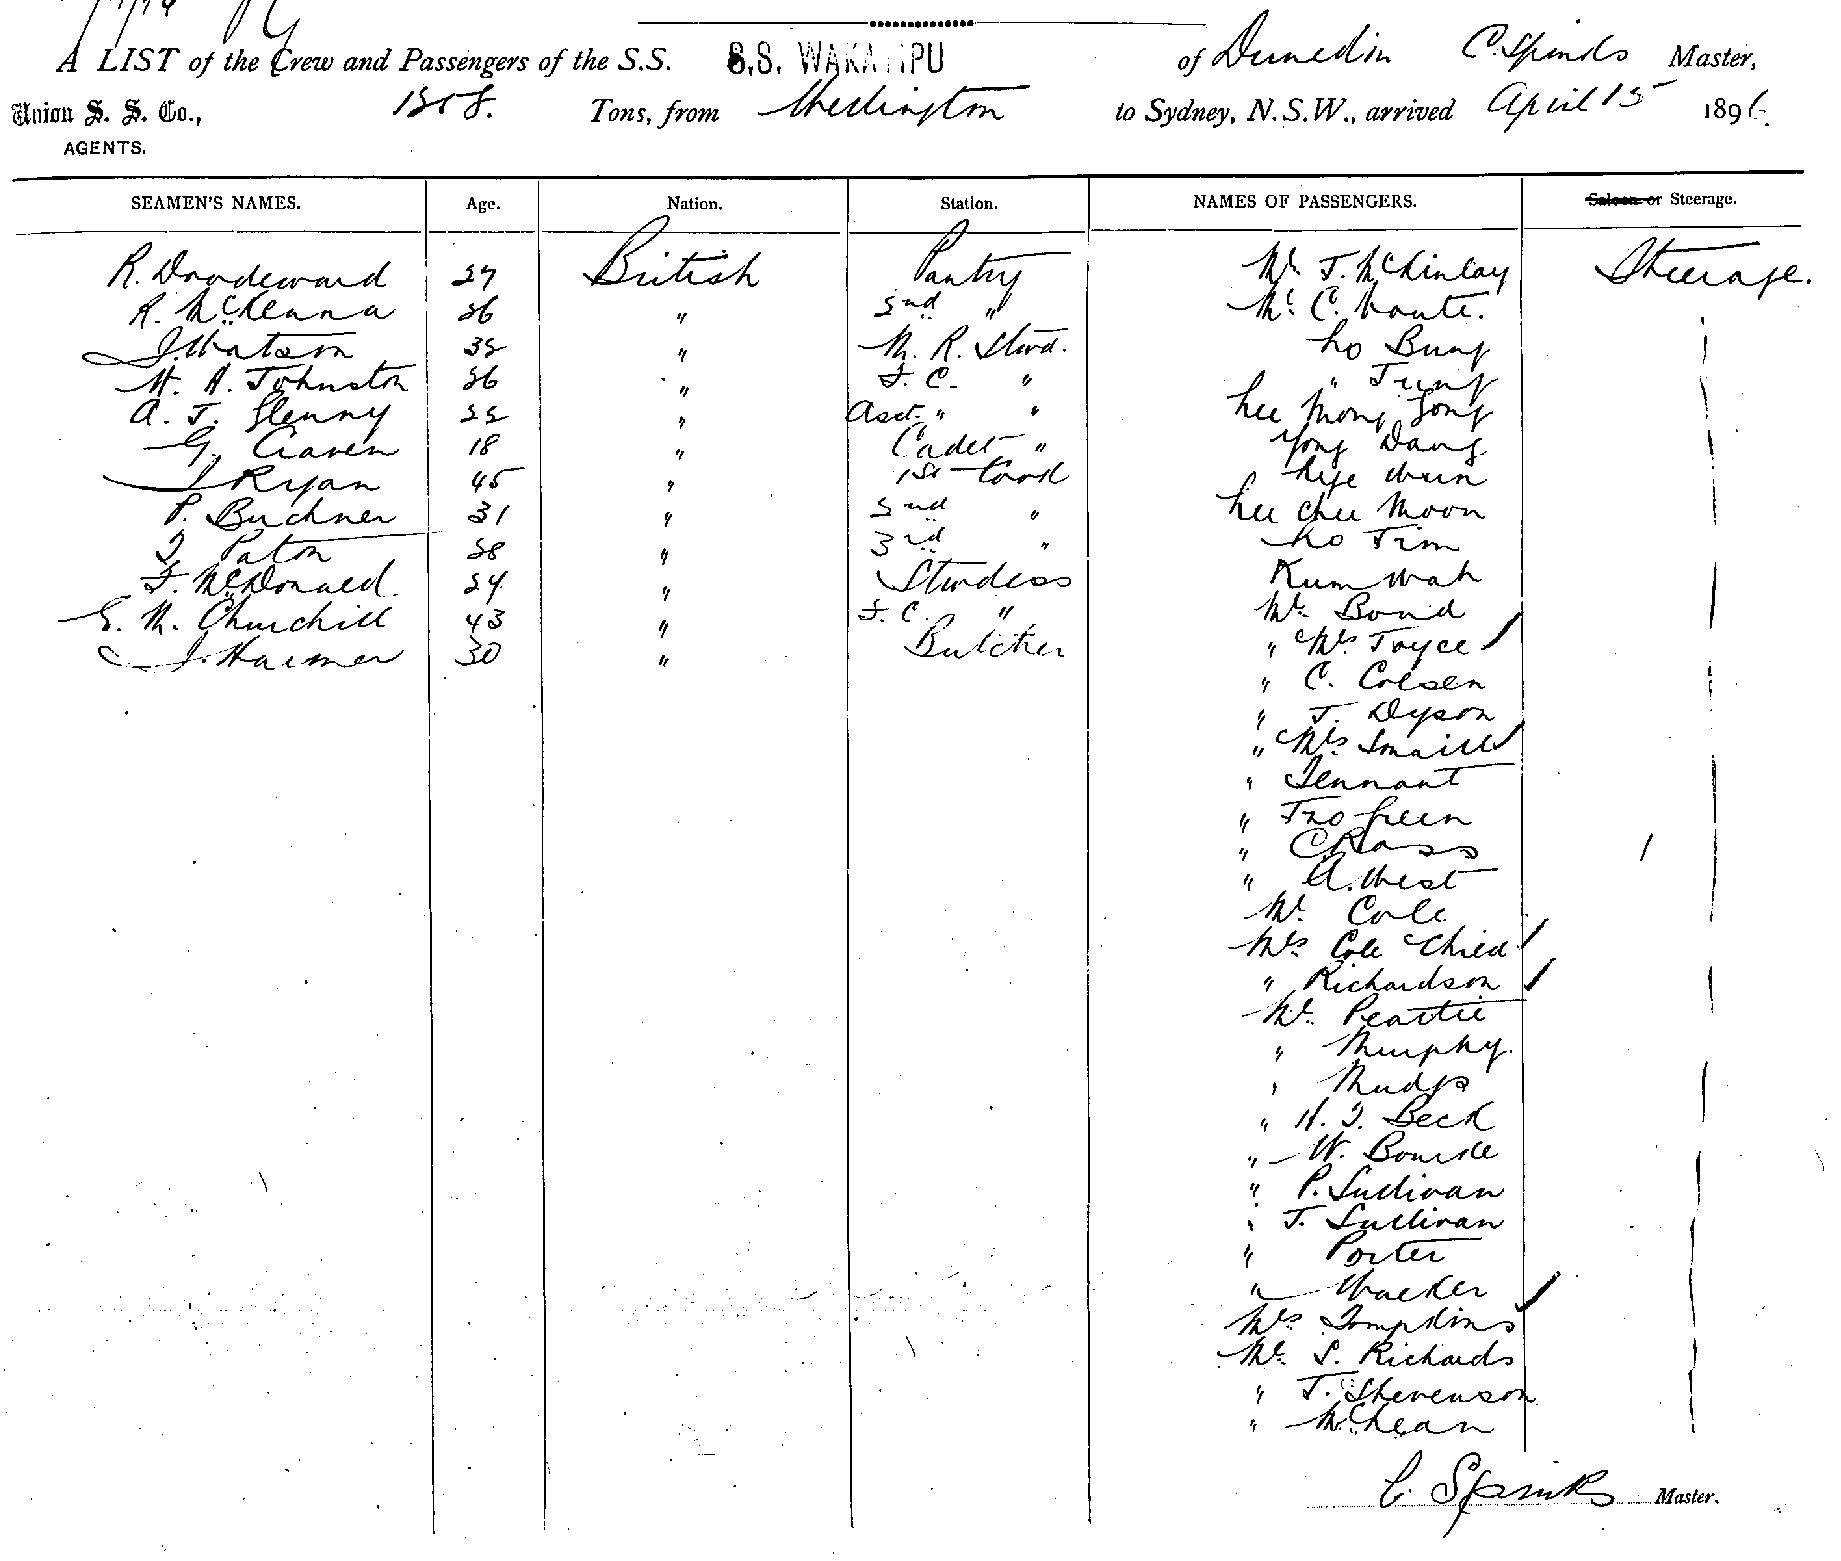 A LIST of the Crew and Passengers of the S.S. S.S. WAKATIPU of Dunedin C. Spinks Master,
Union S. S. Co., 1808. Tons, from Wellington to Sydney, N.S.W., arrived April 15 1896.
AGENTS.
SEAMEN'S NAMES. Age. Nation. Station. NAMES OF PASSENGERS. Saloon or Steerage.
R. 27 British Pantry Mr J. McKinlay Steerage.
R. McKenna 26 " 2nd " Mr C.
J. Watson 32 " M. R. Stwd. Bung
H. A. Johnston 26 " F. C. " " Tung
A. J. Glenny 22 " Asst. " " Lee Mong Gong
G. Craven 18 " Cadet " Yong Dang
J Ryan 45 " 1st Cook Wun
P. Buchner 31 " 2nd " Lee Chee Moon
T. Paton 28 " 3rd " Tim
F. McDonald. 24 " Stwdess Kum Wah
E. M. Churchill 43 " F. C. " Mr. Bond
J. Harmer 30 " Butcher " Mrs Joyce
" C. Colsen
" J. Dyson
" Mrs Smaill
" Tennant
" Jno Green
" C Ross
" A. West
Mr. Cole
Mrs Cole Child
" Richardson
Mr. Peattie
" Murphy.
" Mudge
" H. T. Beck
" W. Bourke
" P. Sullivan
" J. Sullivan
" Porter
" Walker
Mrs Tompkins
Mr S. Richards
" J. Stevenson
" McLean
C. Spinks Master.